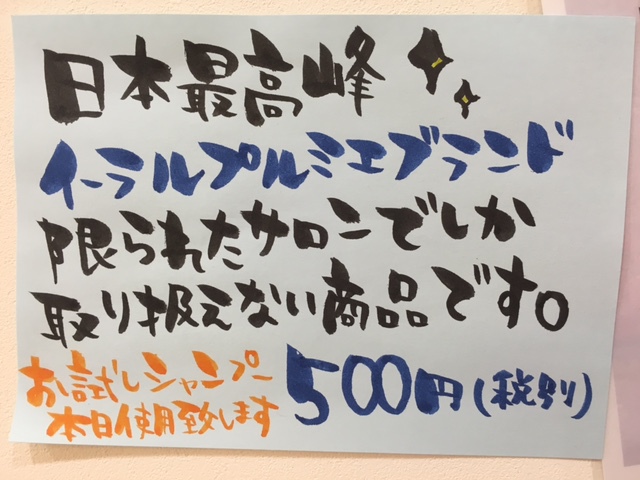 日本最高峰
イーラルプルミエブランド
限られたサロンでしか
取り扱えない商品です。
お試しシャンプー
本日使用致します
500円(税別)